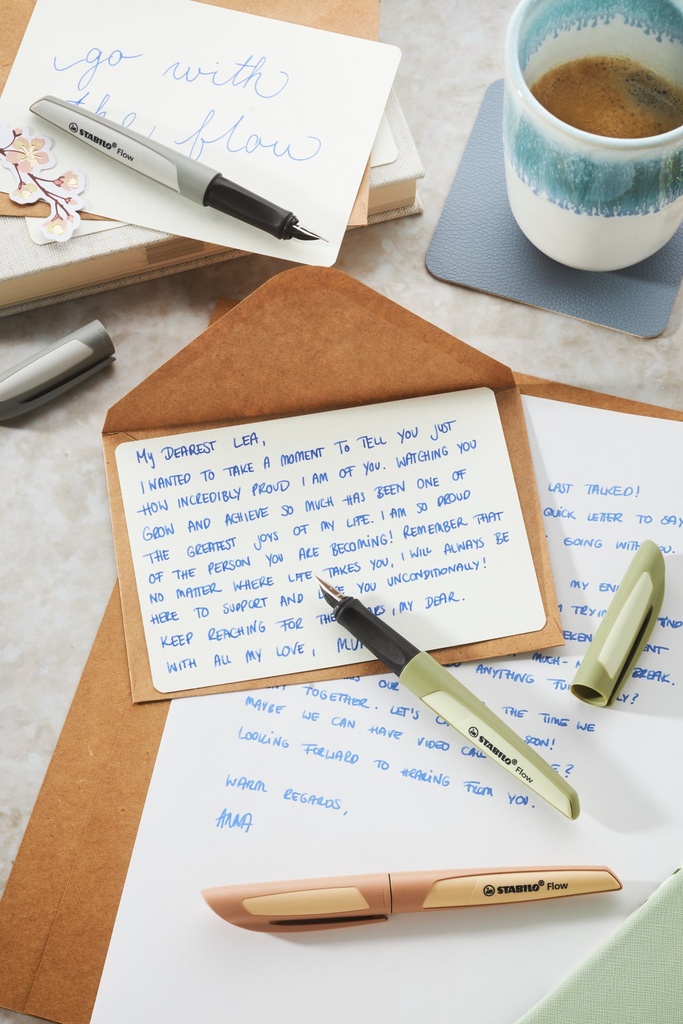 go with
the flow
STABILO® Flow
MY DEAREST LEA,
I WANTED TO TAKE A MOMENT TO TELL YOU JUST
HOW INCREDIBLY PROUD I AM OF YOU. WATCHING YOU
GROW AND ACHIEVE SO MUCH HAS BEEN ONE OF
THE GREATEST JOYS OF MY LIFE. I AM SO PROUD
OF THE PERSON YOU ARE BECOMING! REMEMBER THAT
NO MATTER WHERE LIFE TAKES YOU, I WILL ALWAYS BE
HERE TO SUPPORT AND LOVE YOU UNCONDITIONALLY!
KEEP REACHING FOR THE STARS, MY DEAR.
WITH ALL MY LOVE, MUM
LAST TALKED!
QUICK LETTER TO SAY
GOING WITH YOU.
MY
TRYING
MUCH- BREAK.
OUR ANYTHING
TOGETHER. LET'S THE TIME WE
MAYBE WE CAN HAVE VIDEO CALL SOON!
LOOKING FORWARD TO HEARING FROM YOU.
WARM REGARDS,
ANNA
STABILO® Flow
STABILO® Flow